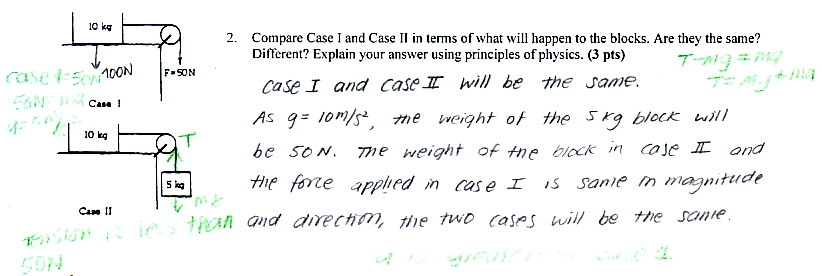 10 kg
100N
F=50N
case 1=50N
50N=ma
Case I
10 kg
T
5 kg
mg
Case II
tension is less than
50N
2. Compare Case I and Case II in terms of what will happen to the blocks. Are they the same?
Different? Explain your answer using principles of physics. (3 pts)
T-mg=ma
T=mg+ma
case I and case II will be the same.
As g= 10m/s², the weight of the 5kg block will
be 50N. The weight of the block in case II and
the force applied in case I is same in magnitude
and direction, the two cases will be the same.
a is greater in case 1.